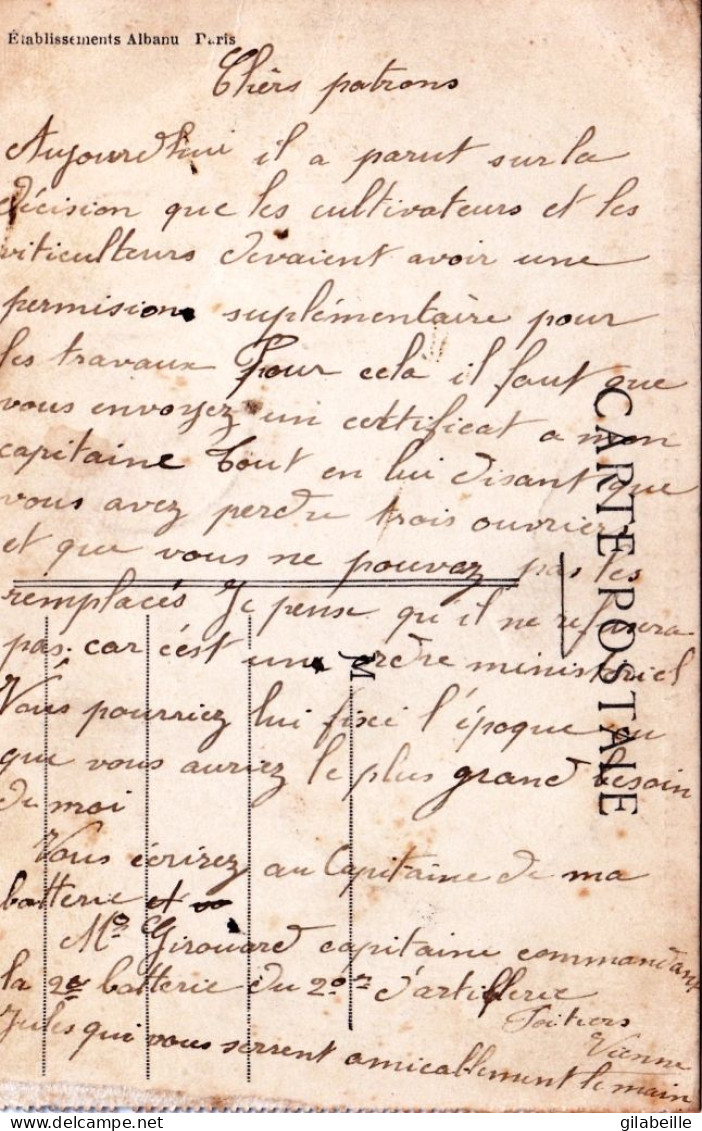 Établissements Albanu Paris
Chèrs patrons
Aujourdhui il a parut sur la
décision que les cultivateurs et les
viticulteurs devaient avoir une
permision suplémentaire pour
les travaux Pour celà il faut que
vous envoyez un certificat a mon
capitaine tout en lui disant que
vous avez perdu trois ouvriers
et que vous ne pouvaz pas les
remplacés Je pense qu'il ne refusera
pas. car c'est une ordre ministériel
Vous pourriez lui fixé l'époque ou
que vous auriez le plus grand besoin
de moi
Vous écrirez au Capitaine de ma
batterie et
Mr Girouard capitaine commandant
la 2e batterie du 20m d'artillerie
Poitiers
Vienne
Jules qui vous serrent amicablement le main
CARTE POSTALE
M
gilabeille